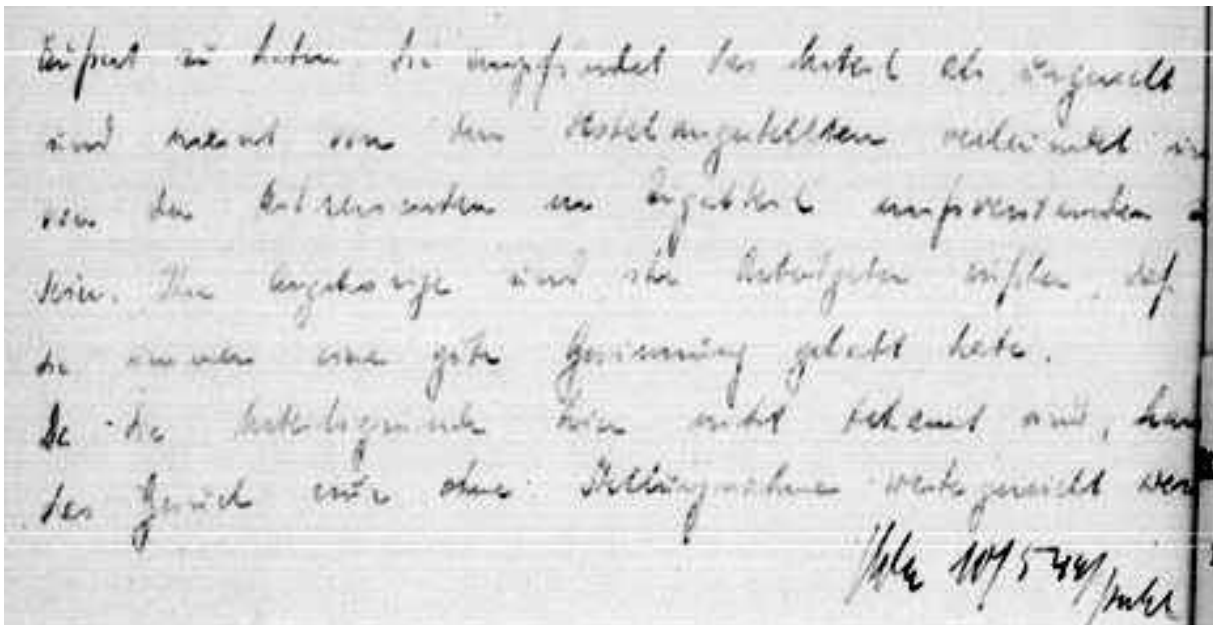 zu haben. Sie empfindet das Urteil als ungerecht
und meint von den Hotelangestellten verleumdet
von den Mitreisenden im Zugabteil missverstanden
sein. Ihre Angehörige und ihr Arbeitgeber wüßten, daß
sie immer eine gute Gesinnung gehabt habe.
Da die Urteilsgründe hier nicht bekannt sind,
das Gesuch nur ohne Stellungnahme weitergereicht
10/5 44